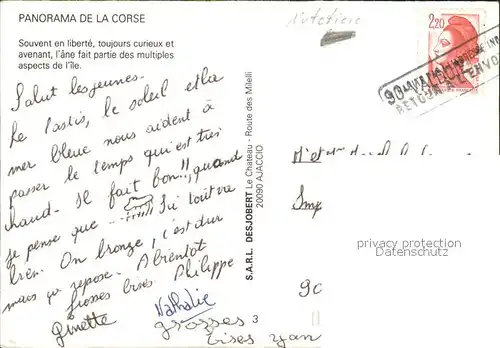 PANORAMA DE LA CORSE
Souvent en liberté, toujours curieux et
avenant, l'âne fait partie des multiples
aspects de l'île.
Salut les jeunes.
Le Pastis, le soleil et la
mer bleue nous aident à
passer le temps qui est très
chaud. Il fait bon !!, quand
je pense que Ici tout va
bien. On bronze, c'est dur
mais ça repose. A bientôt
Grosses bises. Philippe
Ginette
Nathalie
grosses
bises
S.A.R.L. DESJOBERT Le Chateau - Route des Milelli
20090 AJACCIO
3
2,20
90
RETOUR A L'ENVOYEUR
M et
Imp
90
privacy protection
watermark